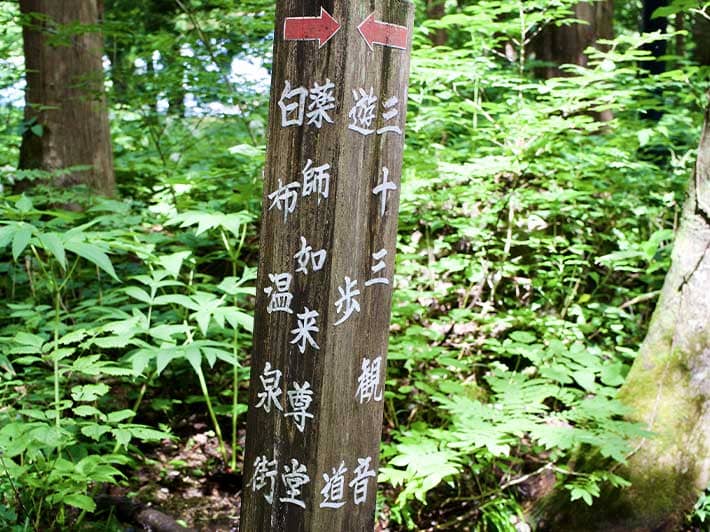 三十三観音
遊歩道
薬師如来尊堂
白布温泉街